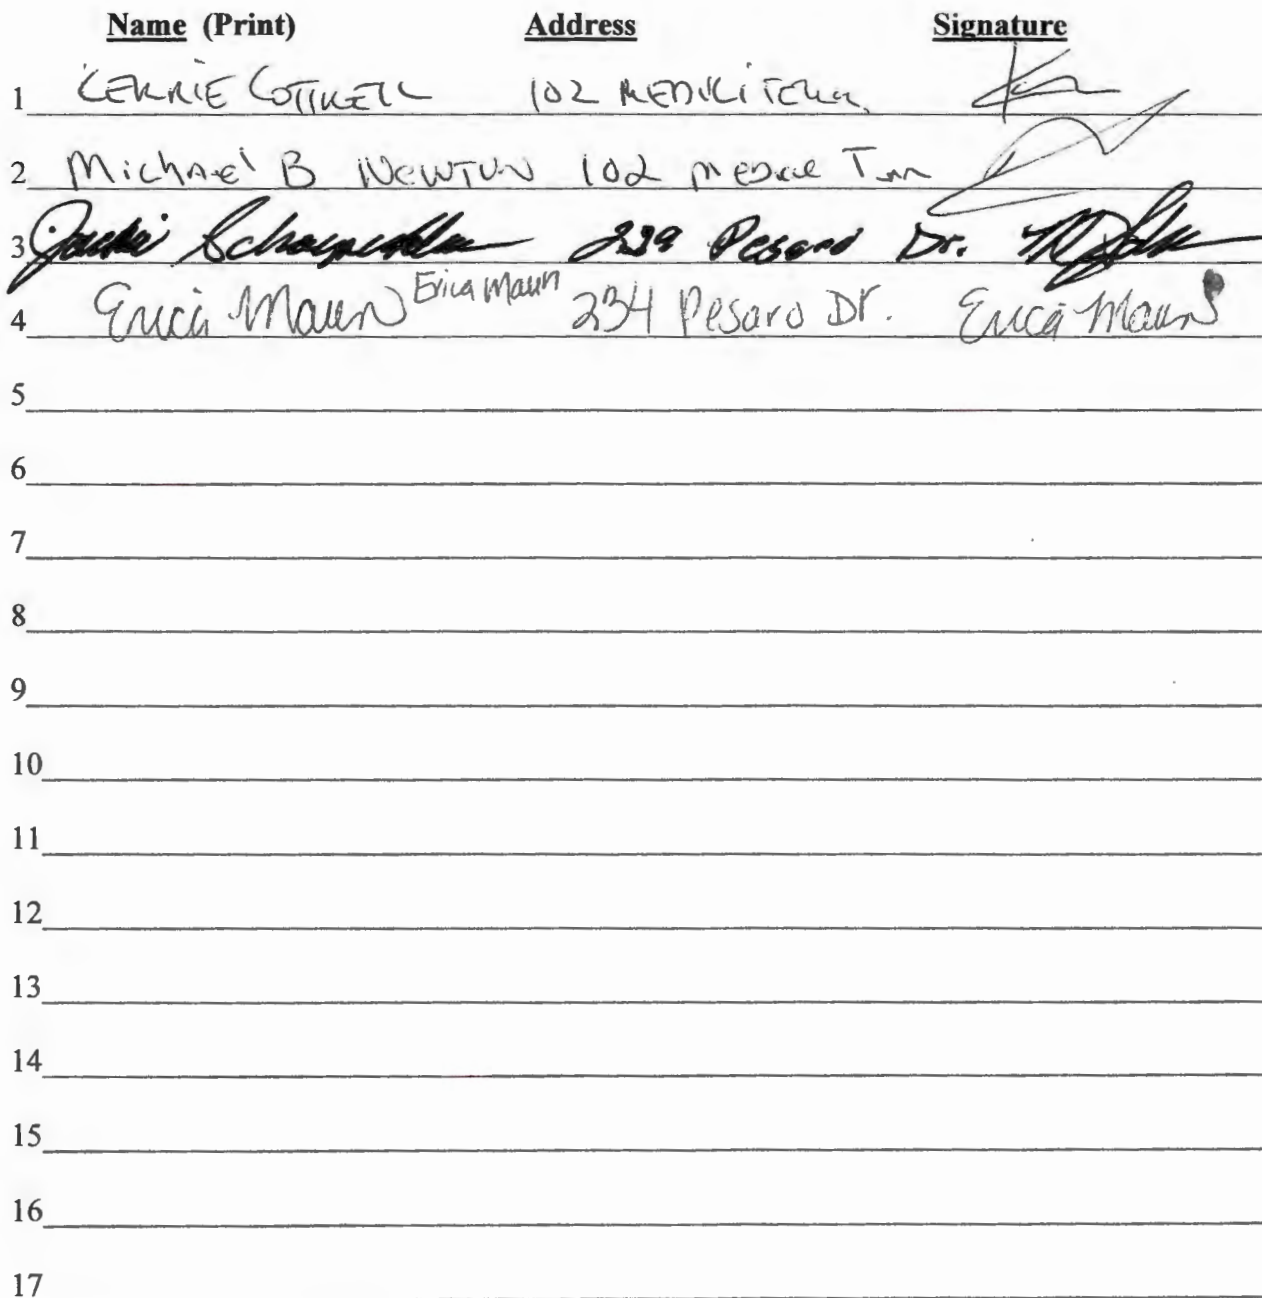 Name (Print) Address Signature
1 KERRIE COTTRELL 102 MEDICI TERR.
2 Michael B NEWTON 102 MEDICI Terr
3 239 Pesaro Dr.
4 Erica Maun Erica Maun 234 Pesaro Dr. Erica Maun
5
6
7
8
9
10
11
12
13
14
15
16
17